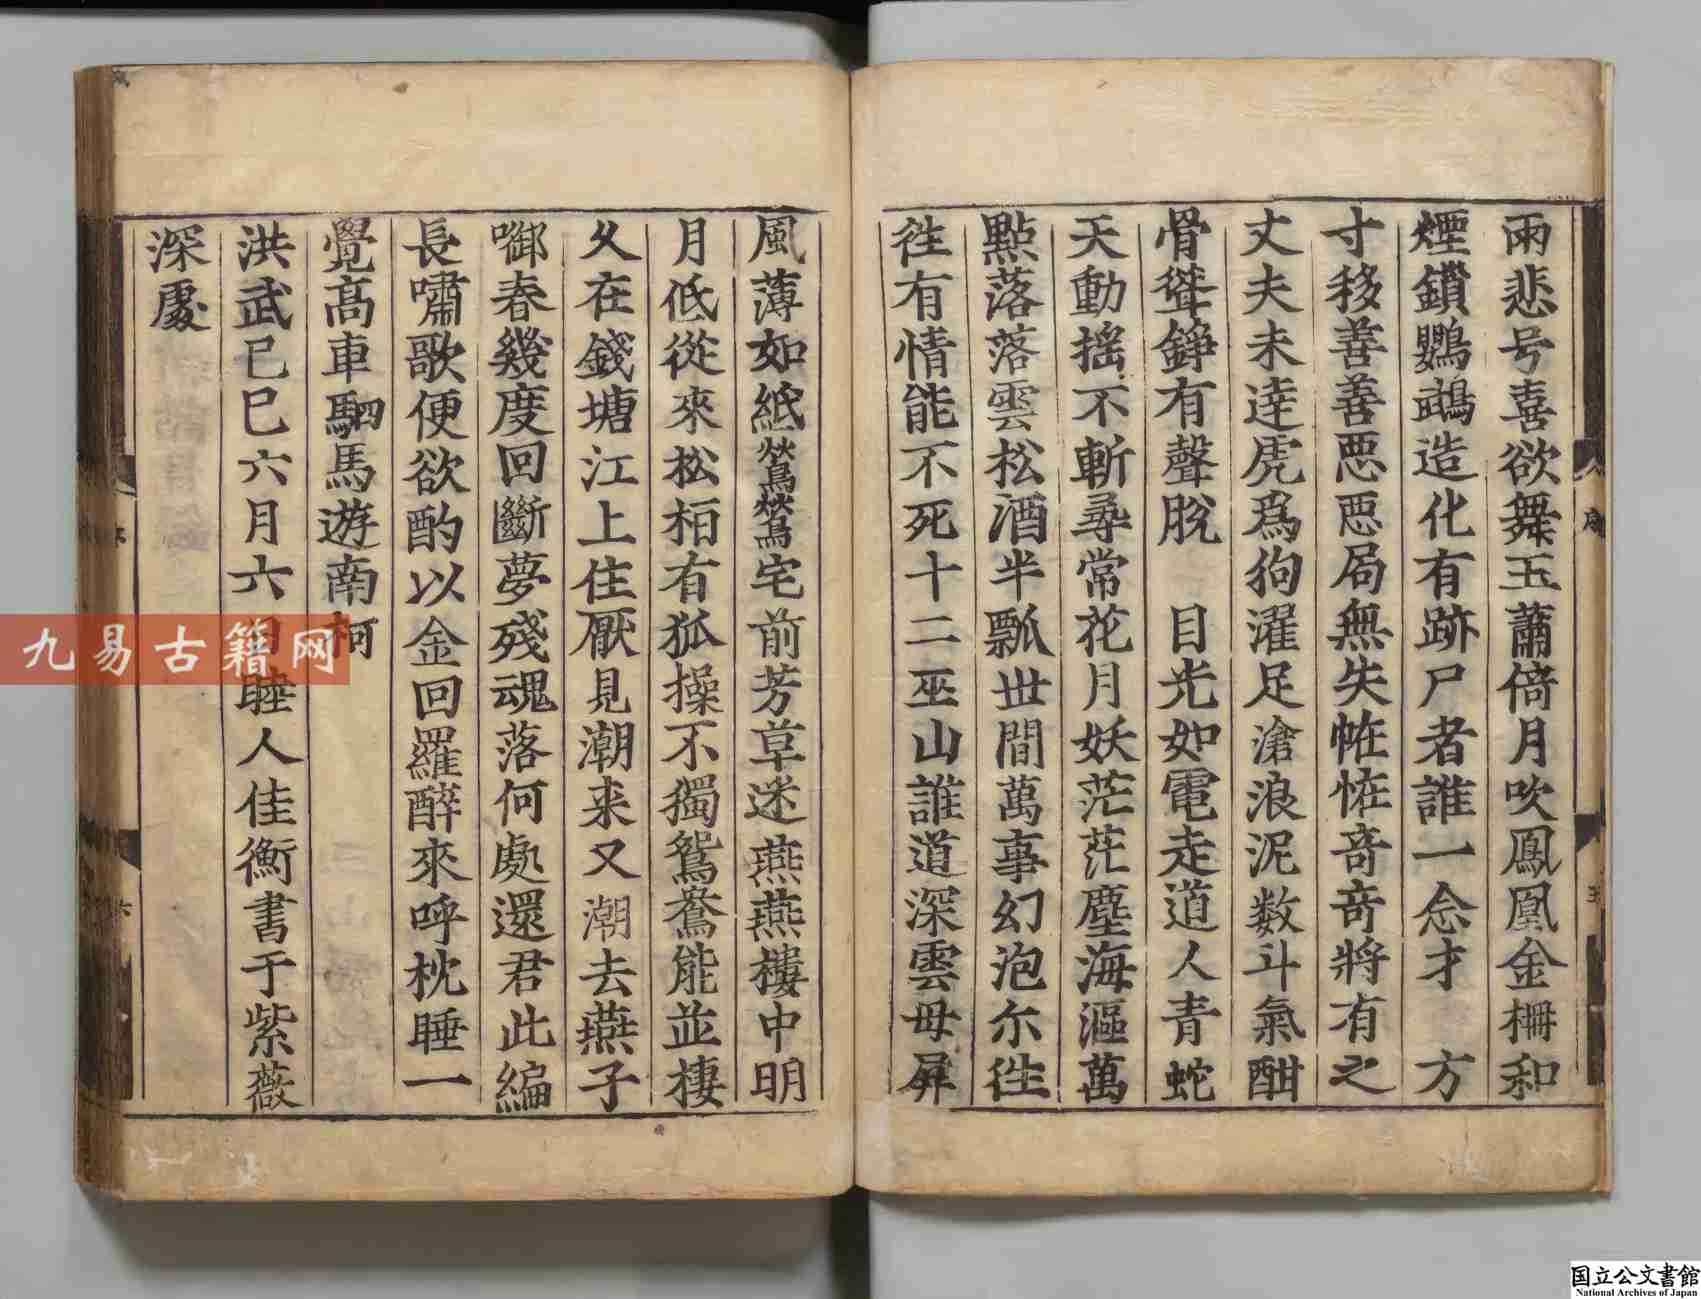 雨悲号喜欲舞玉蕭倚月吹鳳凰金柵和
煙鎖鸚鵡造化有跡尸者誰一念才 方
寸移善善悪悪局無失恠恠竒竒將有之
丈夫未逹虎爲狗濯足滄浪泥数斗氣酣
骨聳錚有聲脫 目光如電走道人青蛇
天動揺不斬尋常花月妖茫茫塵海漚萬
點落落雲松酒半瓢世間萬事幻泡尓徃
徃有情能不死十二巫山誰道深雲母屏
風薄如紙鶯鶯宅前芳草迷燕燕樓中明
月低從來松柏有狐操不獨鴛鴦能並棲
乆在錢塘江上住厭見潮来又潮去燕子
啣春幾度回斷夢殘魂落何處還君此編
長嘯歌便欲酌以金回羅醉來呼枕睡一
覺高車駟馬遊南柯
洪武己巳六月六日睦人佳衡書于紫薇
深處
九易古籍网
国立公文書館
National Archives of Japan